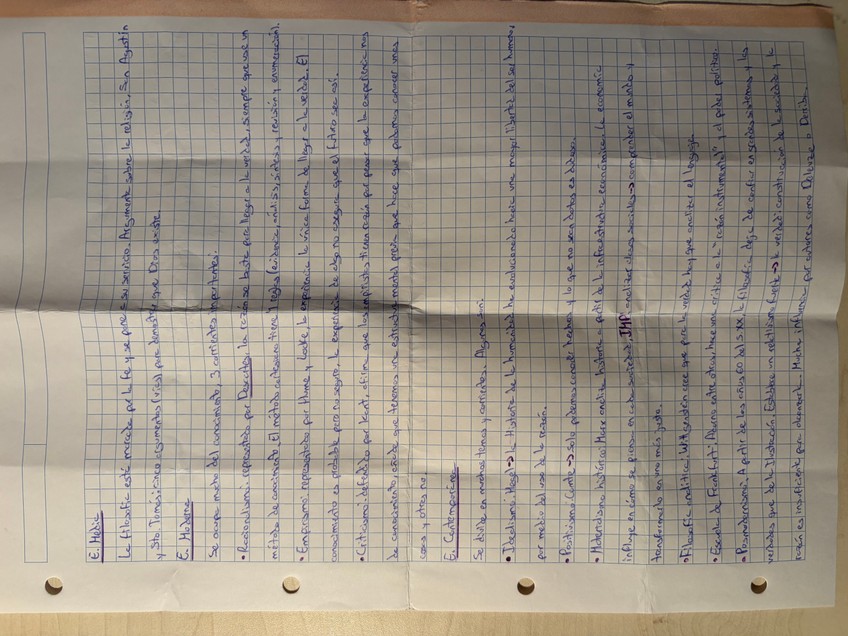 E. Media
La filosofía está marcada por la fe y se pone a su servicio. Argumenta sobre la religión. San Agustín
y Sto. Tomás: cinco argumentos (vías) para demostrar que Dios existe.
E. Moderna
Se ocupa mucho del conocimiento, 3 corrientes importantes:
• Racionalismo: representado por Descartes. La razón se basta para llegar a la verdad, siempre que use un
método de conocimiento. El método cartesiano tiene 4 reglas (evidencia, análisis, síntesis y revisión y enumeración).
• Empirismo: representado por Hume y Locke, la experiencia la única forma de llegar a la verdad. El
conocimiento es probable pero no seguro, la experiencia de algo no asegura que el futuro sea así.
• Criticismo: defendido por Kant, afirma que los empiristas tienen razón que pensar que la experiencia nos
da conocimiento, añade que tenemos una estructura mental previa que hace que podamos conocer unas
cosas y otras no.
E. Contemporánea
Se divide en muchos temas y corrientes. Algunas son:
• Idealismo: Hegel → la Historia de la humanidad ha evolucionado hacia una mayor libertad del ser humano,
por medio del uso de la razón.
• Positivismo: Comte → Solo podemos conocer hechos y lo que no sean datos es dudoso.
• Materialismo histórico: Marx analiza historia a partir de la infraestructura económica. Lo económico
influye en cómo se piensa en cada sociedad. IMP analizar clases sociales → comprender el mundo y
transformarlo en uno más justo.
• Filosofía analítica: Wittgenstein cree que para la verdad hay que analizar el lenguaje.
• Escuela de Frankfurt: Adorno entre otros, hace una crítica a la "razón instrumental" y al poder político.
• Posmodernismo: A partir de los años 60 del S. XX, la filosofía deja de confiar en grandes sistemas y las
verdades que da la Ilustración. Establece un relativismo fuerte → la verdad: constitución de la sociedad y la
razón es insuficiente para abarcarla. Mucha influencia por autores como Deleuze o Derrida.